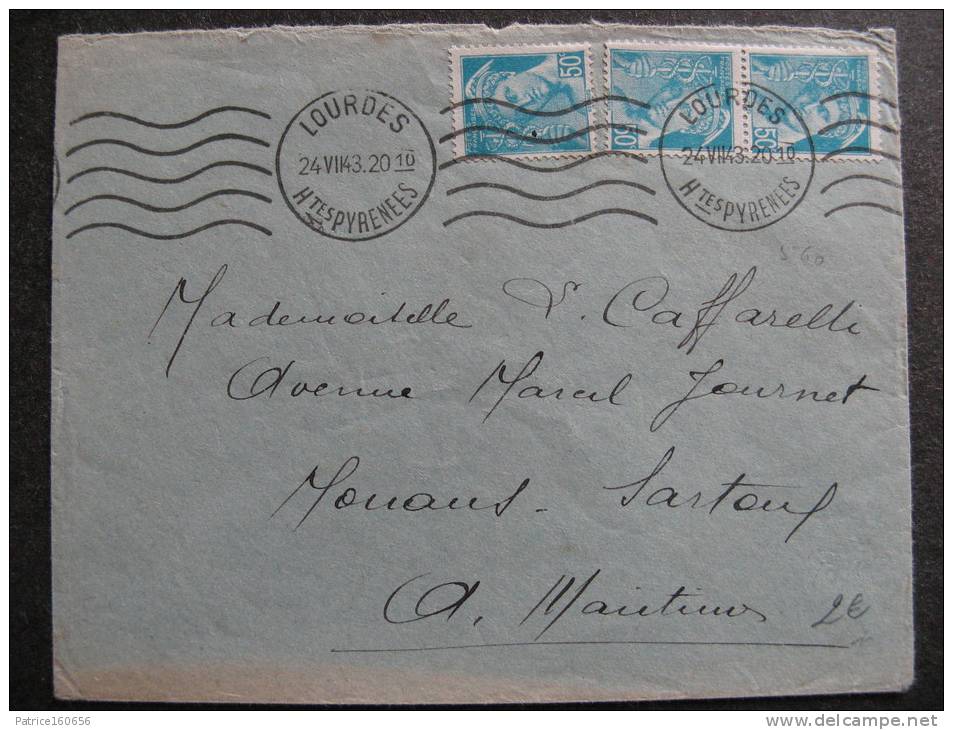 50c
50c
50c
LOURDES
24 VII 43.20 10
HTES PYRENEES
LOURDES
24 VII 43.20 10
HTES PYRENEES
Mademoiselle L. Caffarelli
Avenue Marcel Journet
Mouans-Sartoux
A. Maritimes
2€
Patrice160656
www.delcampe.net